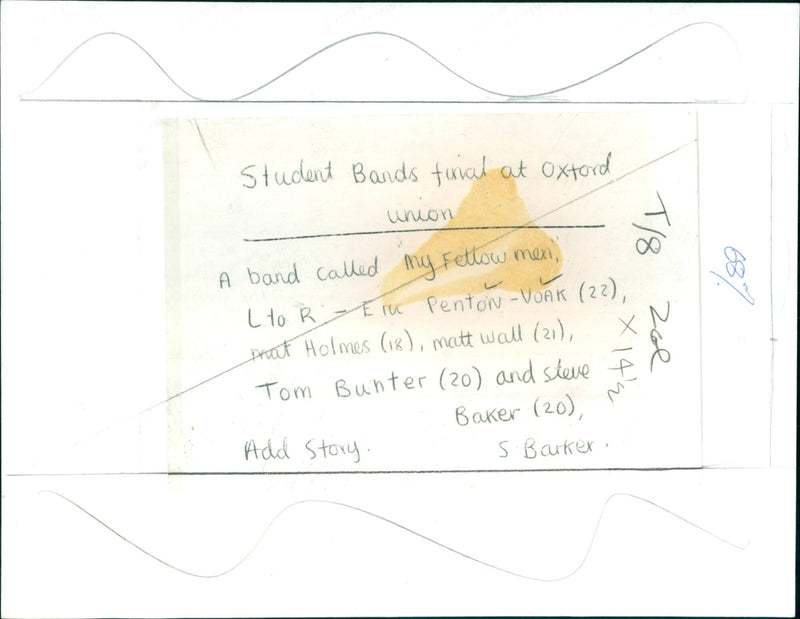 Student Bands final at Oxford
union
A band called "My Fellow men,"
L to R - Eric PENTON-VOAK (22),
mat Holmes (18), matt Wall (21),
Tom Bunter (20) and steve
Baker (20),
Add Story. S Barker.
T/8
X 14½
68%